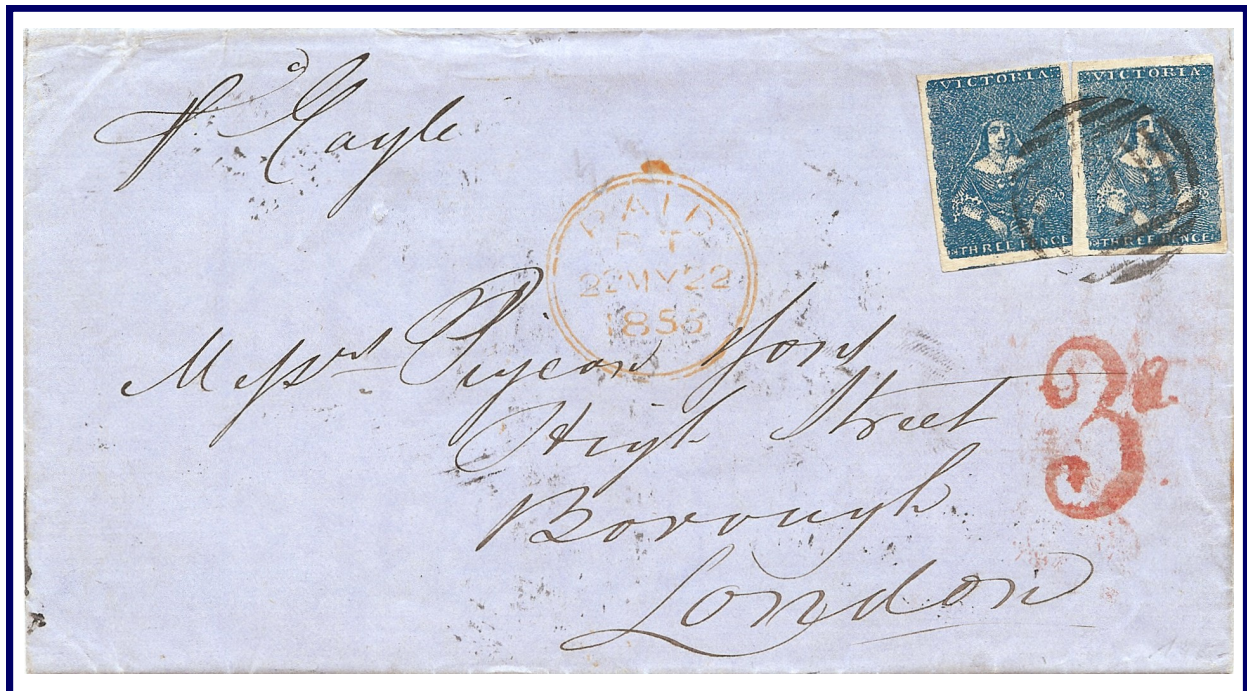 pr Eagle
VICTORIA
THREE PENCE
VICTORIA
THREE PENCE
PAID
22 MY 22
185
3d
Messrs
High Street
Borough
London